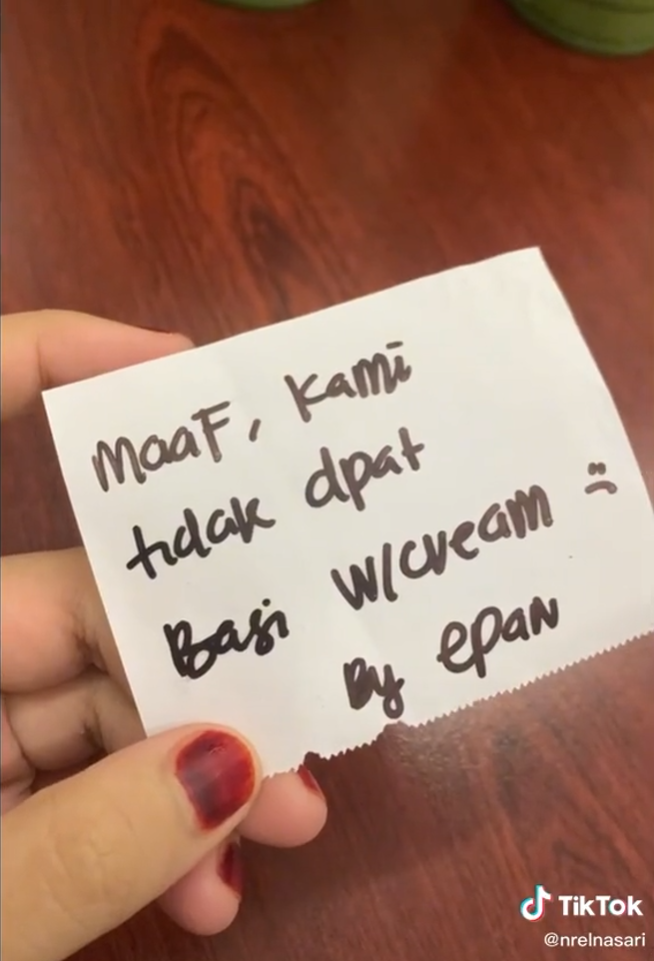 MaaF, Kami
tidak dpat
Basi W/cream :(
By epan
TikTok
@nrelnasari